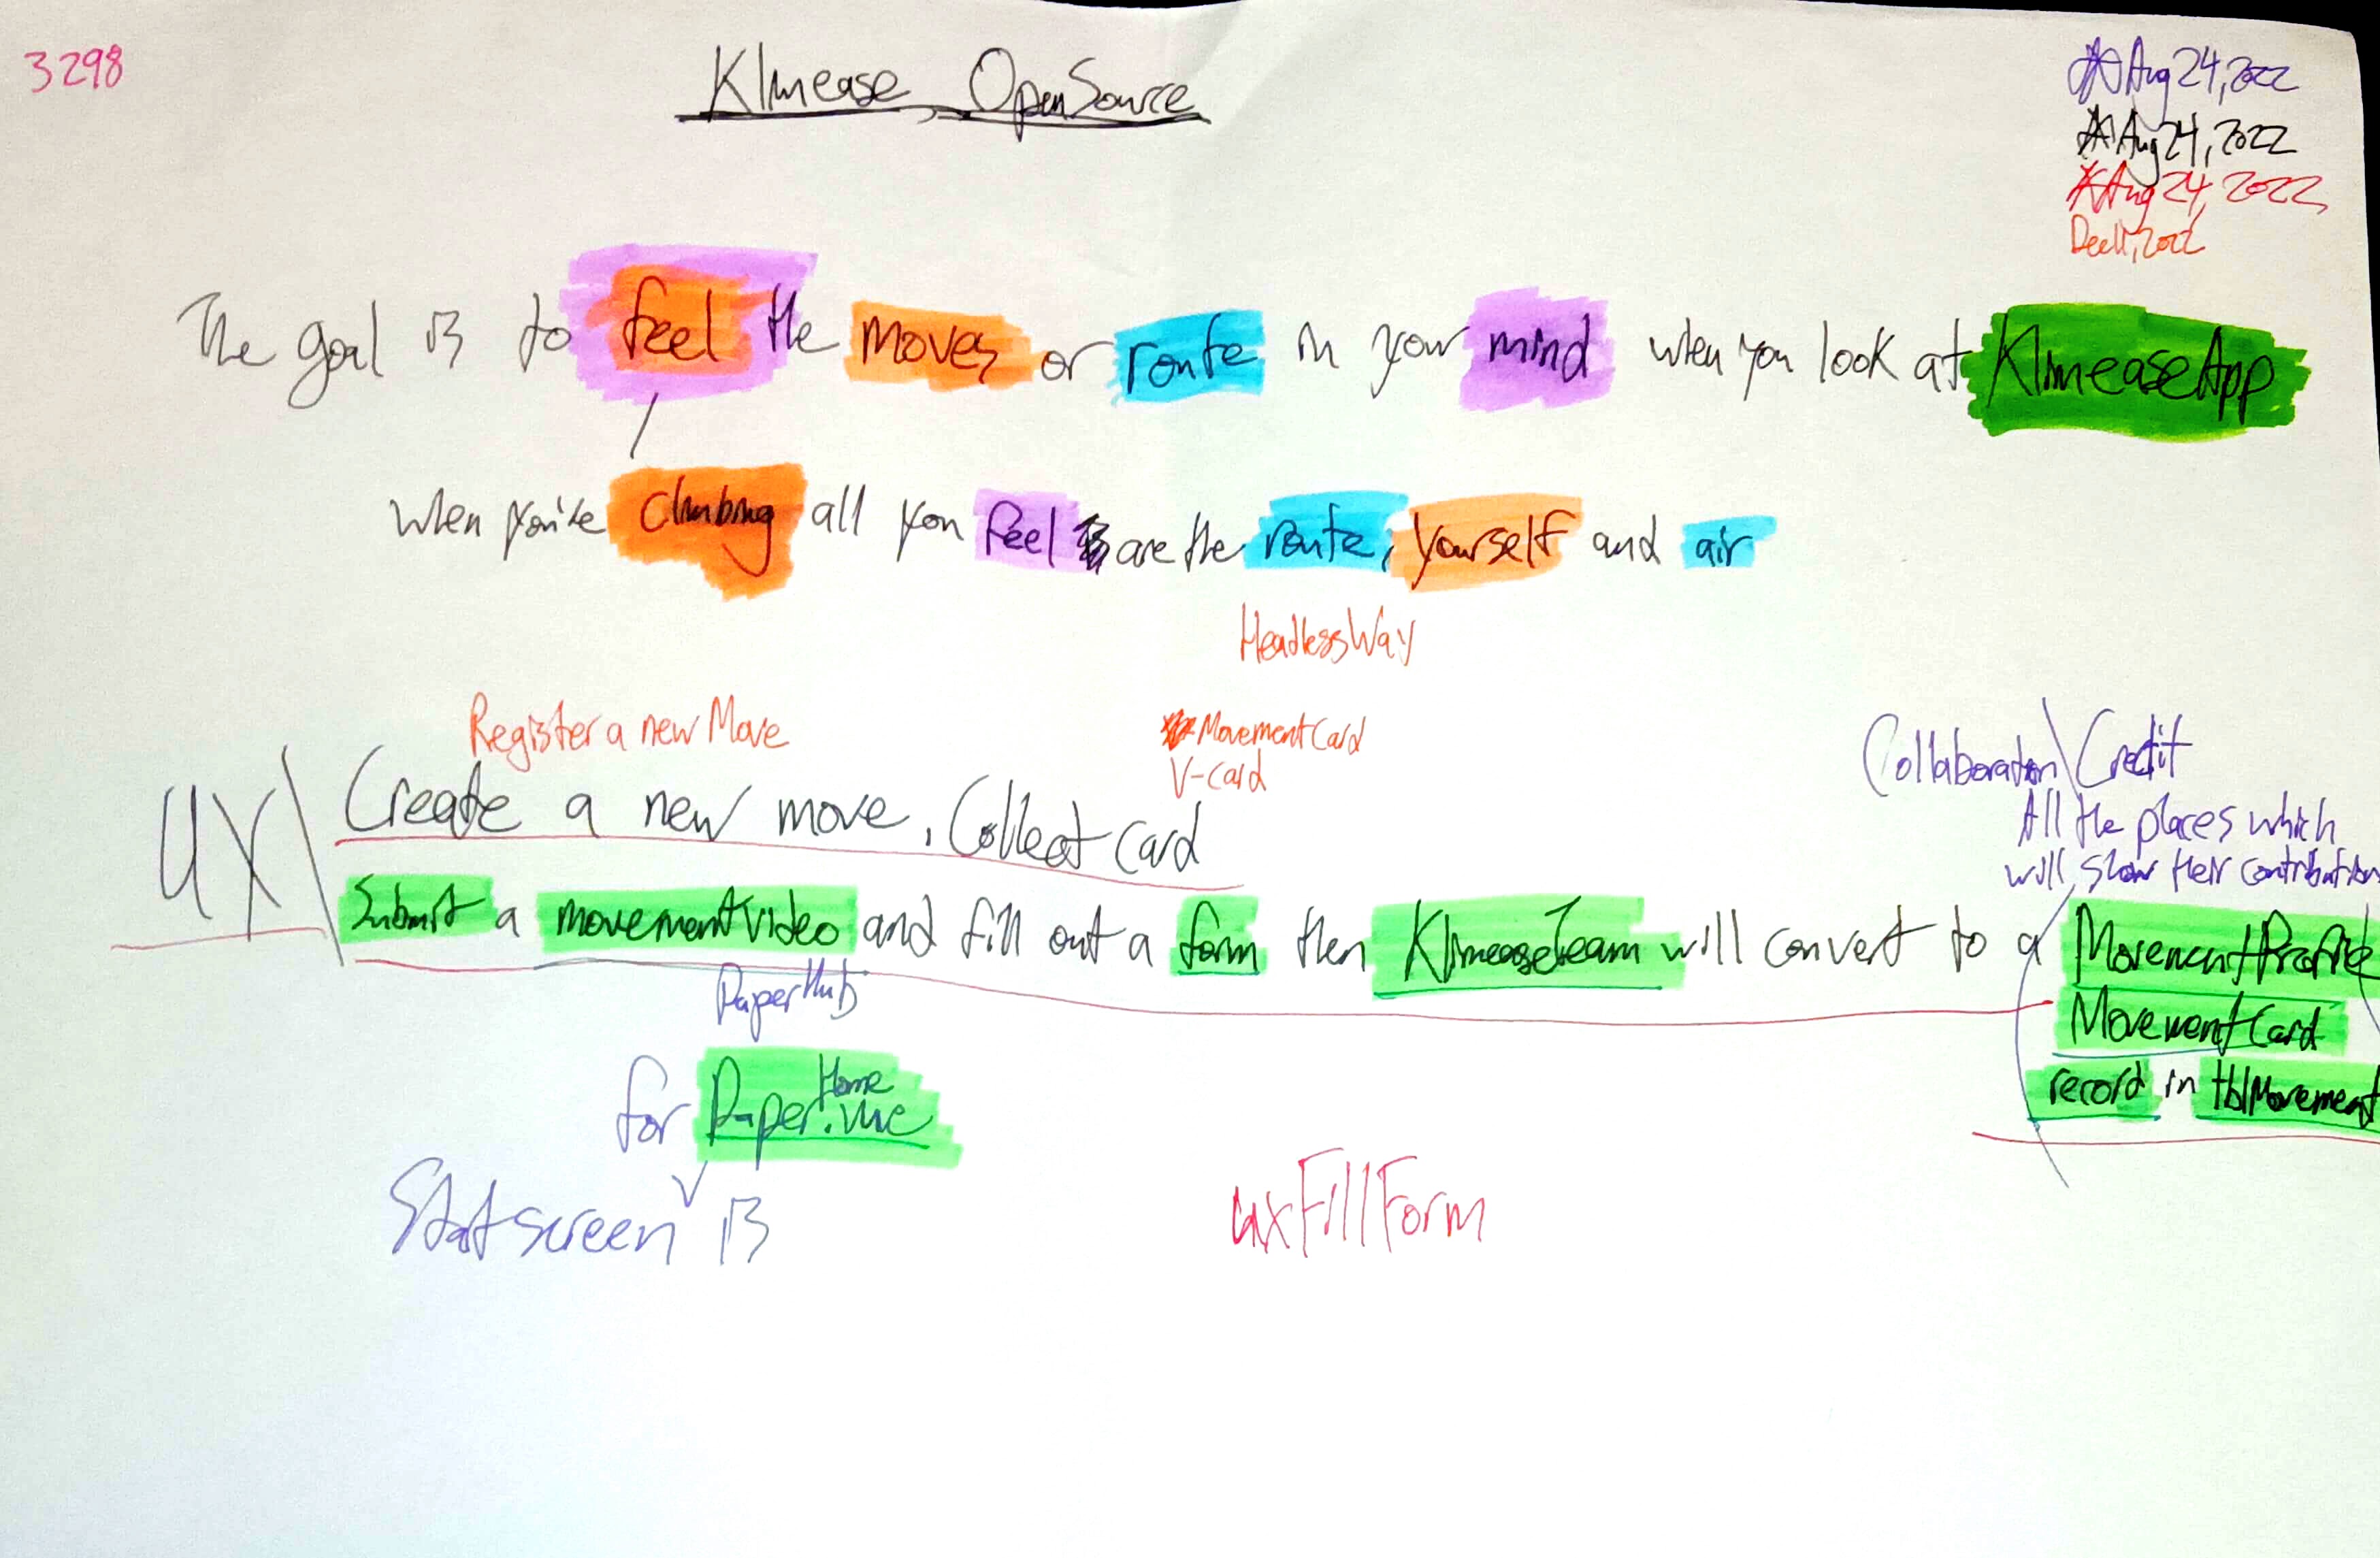 3298
Klimease, OpenSource
Aug 24, 2022
Aug 24, 2022
Aug 24, 2022
The goal is to feel the moves or route in your mind when you look at KlimeaseApp
when you're climbing all you feel are the route, yourself and air
HeadlessWay
Register a new Move
MovementCard
V-card
Collaboration\Credit
All the places which
will show their contribution
UX\ Create a new move, Collect Card
Submit a movementVideo and fill out a form then KlimeaseTeam will convert to a MovementProfile
MovementCard
record in tblMovement
PaperHub
for PaperHome.vue
Statscreen is
uxFillForm